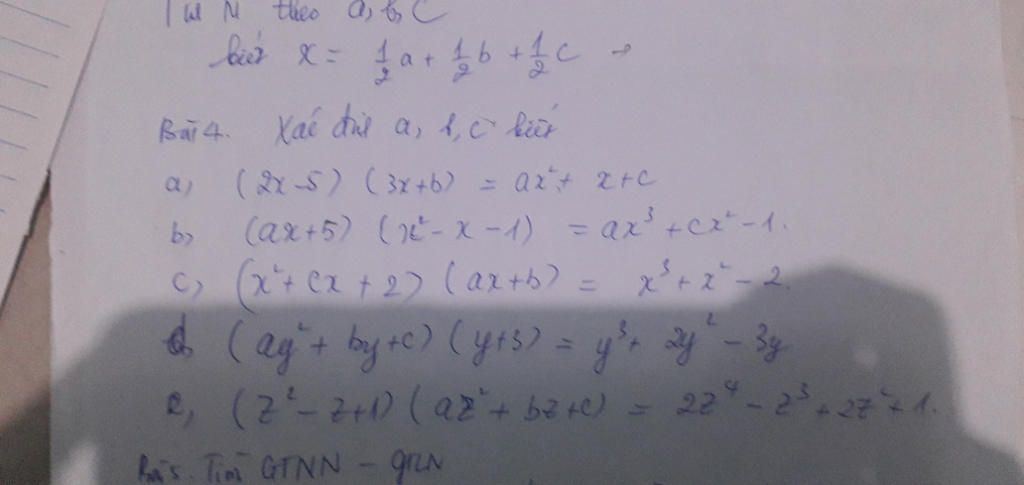 theo a, b, c
biết x = 1/2 a + 1/2 b + 1/2 c
Bài 4. Xác định a, b, c biết
a, (2x-5) (3x+b) = ax² + x + c
b, (ax+5) (x² - x - 1) = ax³ + cx² - 1.
c, (x² + cx + 2) (ax+b) = x³ + x² - 2.
d, (ay² + by + c) (y+3) = y³ + 2y² - 3y
e, (z² - z + 1) (az² + bz + c) = 2z⁴ - z³ + 2z² + 1.
Bài 5. Tìm GTNN - GTLN